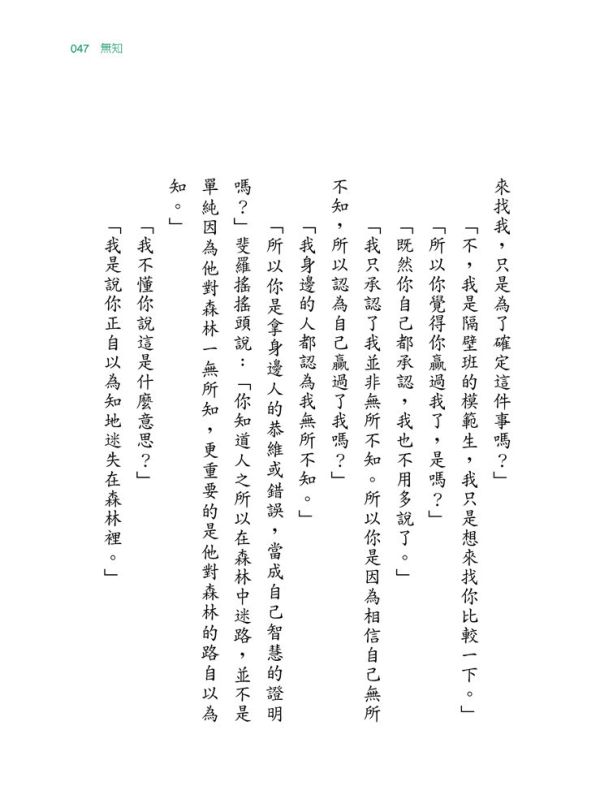 047 無知
來找我，只是為了確定這件事嗎？」
「不，我是隔壁班的模範生，我只是想來找你比較一下。」
「所以你覺得你贏過我了，是嗎？」
「既然你自己都承認，我也不用多說了。」
「我只承認了我並非無所不知。所以你是因為相信自己無所
不知，所以認為自己贏過了我嗎？」
「我身邊的人都認為我無所不知。」
「所以你是拿身邊人的恭維或錯誤，當成自己智慧的證明
嗎？」斐羅搖搖頭說：「你知道人之所以在森林中迷路，並不是
單純因為他對森林一無所知，更重要的是他對森林的路自以為
知。」
「我不懂你說這是什麼意思？」
「我是說你正自以為知地迷失在森林裡。」